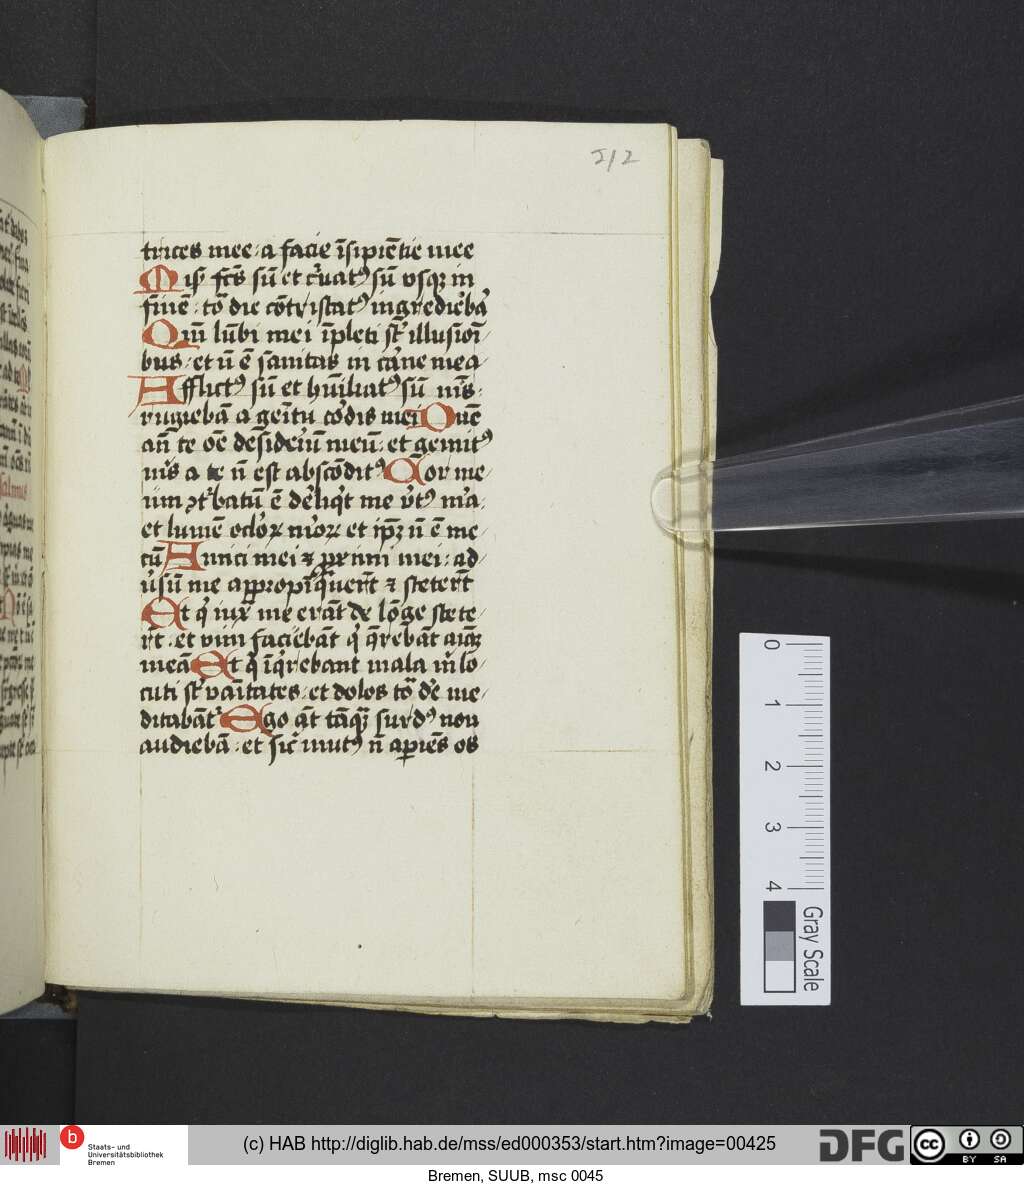 212
trices mee: a facie īsipiētie mee
Miſ fcs̄ sū et c̄uatꝰ sū vsqꝫ in
finē: to᷑ die cōtristatꝰ ingrediēba᷑
Qm̄ lūbi mei īpleti sī illusioī
bus: et n̄ ē sanitas in carne mea
Afflictꝰ sū et hūiliatꝰ sū nīs
rugiebā a gemitu cordis mei Dnē
an̄ te oē desideriū meū: et gemitꝰ
mīs a te n̄ est abscōditꝰ Cor me
um ꝯtbatū ē dereliqt me v̄tꝰ mea
et lumē oclōꝝ meoꝝ et ip̄ꝫ n̄ ē me
cū Amici mei ⁊ proximi mei: ad
u᷑sū me appropīquert̄ ⁊ stetert̄
Et q iux᷑ me erāt de lōge stete
rt̄: et vim faciebāt q querebāt aīaꝫ
meā Et q īqrebant mala m̄ lo
cuti st᷑ vaītates: et dolos to᷑ de me
ditabāt᷑ Ego aūt tāqꝫ surdꝰ non
audiebā: et sic᷑ mutꝰ n̄ aperiēs os
0
1
2
3
4
Gray Scale
b
Staats- und
Universitätsbibliothek
Bremen
(c) HAB http://diglib.hab.de/mss/ed000353/start.htm?image=00425
DFG
cc
BY SA
Bremen, SUUB, msc 0045